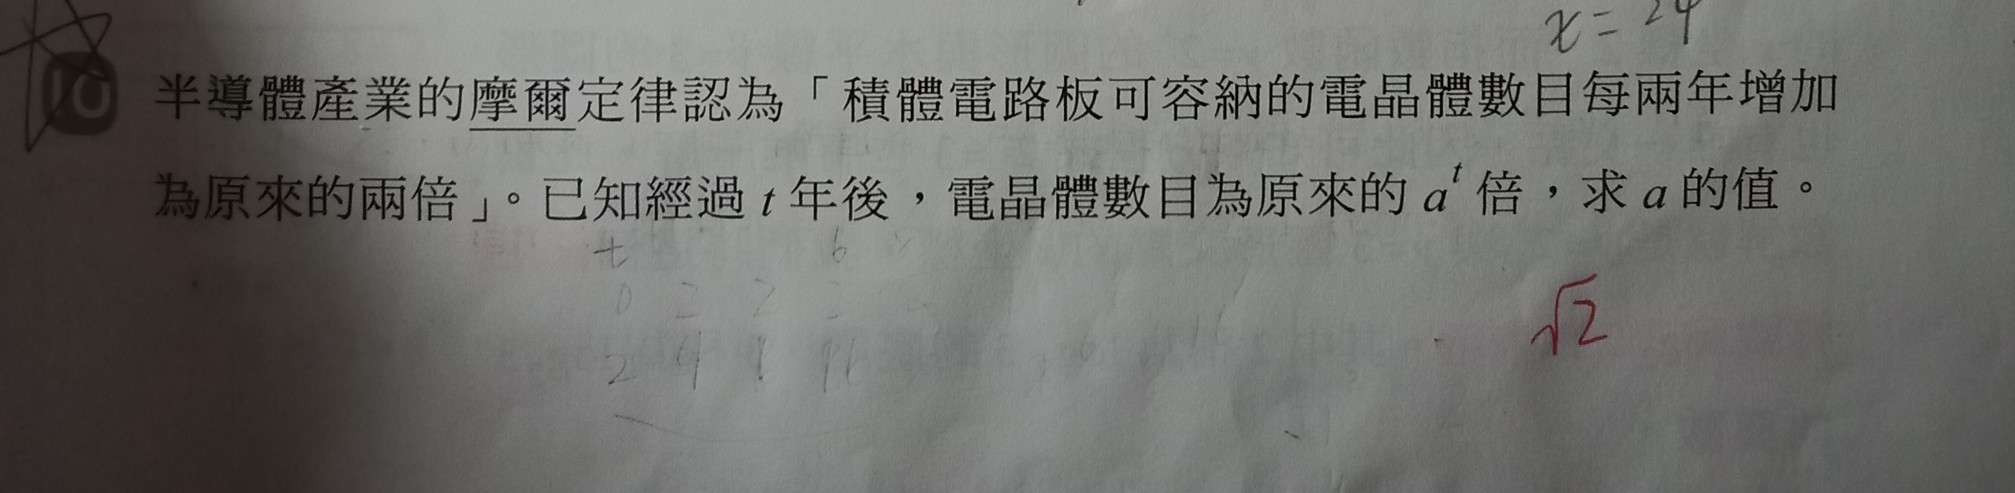 x = 24
10 半導體產業的摩爾定律認為「積體電路板可容納的電晶體數目每兩年增加
為原來的兩倍」。已知經過 t 年後，電晶體數目為原來的 a^t 倍，求 a 的值。
t
√2